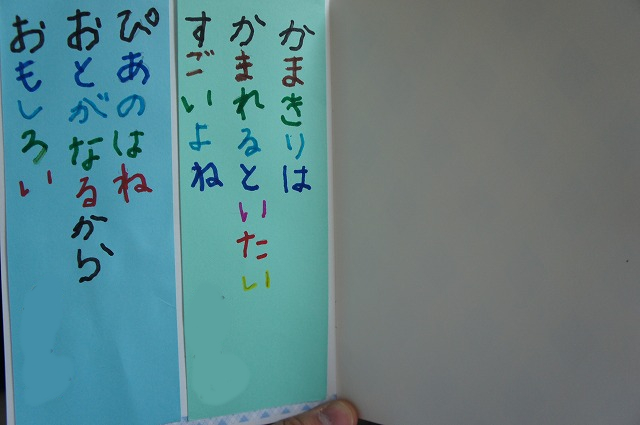 かまきりは
かまれるといたい
すごいよね
ぴあのはね
おとがなるから
おもしろい